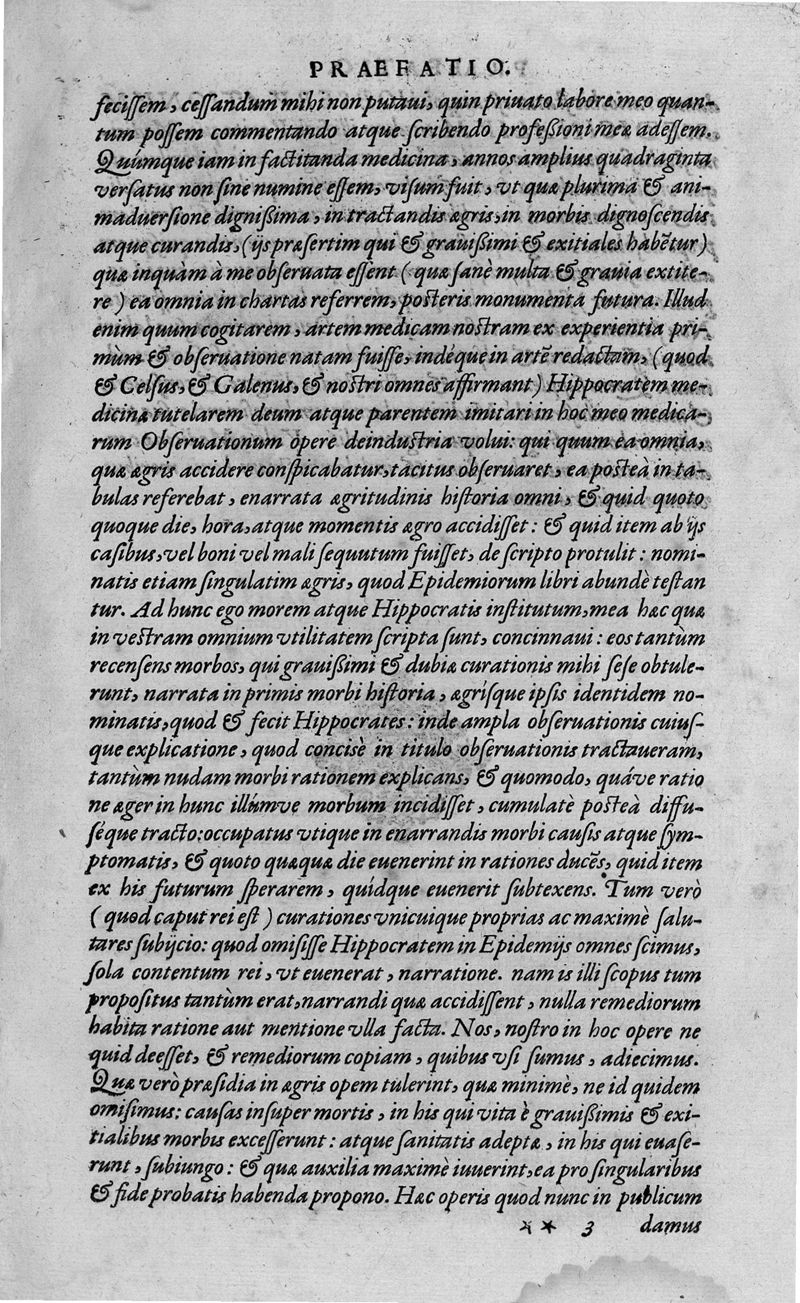 PRAEFATIO.
feciſſem, ceſſandum mihi non putaui, quin priuato labore meo quan-
tum poſſem commentando atque ſcribendo profeßioni meæ adeſſem.
Quúmque iam in factitanda medicina, annos amplius quadraginta
verſatus non ſine numine eſſem, viſum fuit, vt quæ plurima & ani-
maduerſione dignißima, in tractandis ægris, in morbis dignoſcendis
atque curandis, (ijs præſertim qui & grauißimi & exitiales habētur)
quæ inquàm à me obſeruata eſſent (quæ ſanè multa & grauia extite-
re) ea omnia in chartas referrem, poſteris monumenta futura. Illud
enim quum cogitarem, artem medicam noſtram ex experientia pri-
mùm & obſeruatione natam fuiſſe, indéque in artē redactam, (quod
& Celſus, & Galenus, & noſtri omnes affirmant) Hippocratem me-
dicinæ tutelarem deum atque parentem imitari in hoc meo medica-
rum Obſeruationum opere deinduſtria volui: qui quum ea omnia,
quæ ægris accidere conſpicabatur, tacitus obſeruaret, ea poſteà in ta-
bulas referebat, enarrata ægritudinis hiſtoria omni, & quid quoto
quoque die, hora, atque momentis ægro accidiſſet: & quid item ab ijs
caſibus, vel boni vel mali ſequutum fuiſſet, de ſcripto protulit: nomi-
natis etiam ſingulatim ægris, quod Epidemiorum libri abundè teſtan
tur. Ad hunc ego morem atque Hippocratis inſtitutum, mea hæc quæ
in veſtram omnium vtilitatem ſcripta ſunt, concinnaui: eos tantùm
recenſens morbos, qui grauißimi & dubiæ curationis mihi ſeſe obtule-
runt, narrata in primis morbi hiſtoria, ægríſque ipſis identidem no-
minatis, quod & fecit Hippocrates: inde ampla obſeruationis cuiuſ-
que explicatione, quod conciſè in titulo obſeruationis tractaueram,
tantùm nudam morbi rationem explicans, & quomodo, quáve ratio
ne æger in hunc illúmve morbum incidiſſet, cumulatè poſteà diffu-
ſéque tracto: occupatus vtique in enarrandis morbi cauſis atque ſym-
ptomatis, & quoto quæquæ die euenerint in rationes ducēs, quid item
ex his futurum ſperarem, quídque euenerit ſubtexens. Tum verò
(quod caput rei eſt) curationes vnicuique proprias ac maximè ſalu-
tares ſubijcio: quod omiſiſſe Hippocratem in Epidemijs omnes ſcimus,
ſola contentum rei, vt euenerat, narratione. nam is illi ſcopus tum
propoſitus tantùm erat, narrandi quæ accidiſſent, nulla remediorum
habita ratione aut mentione vlla facta. Nos, noſtro in hoc opere ne
quid deeſſet, & remediorum copiam, quibus vſi ſumus, adiecimus.
Quæ verò præſidia in ægris opem tulerint, quæ minimè, ne id quidem
omiſimus: cauſas inſuper mortis, in his qui vita è grauißimis & exi-
tialibus morbis exceſſerunt: atque ſanitatis adeptæ, in his qui euaſe-
runt, ſubiungo: & quæ auxilia maximè iuuerint, ea pro ſingularibus
& fide probatis habenda propono. Hæc operis quod nunc in publicum
★ ★ 3 damus